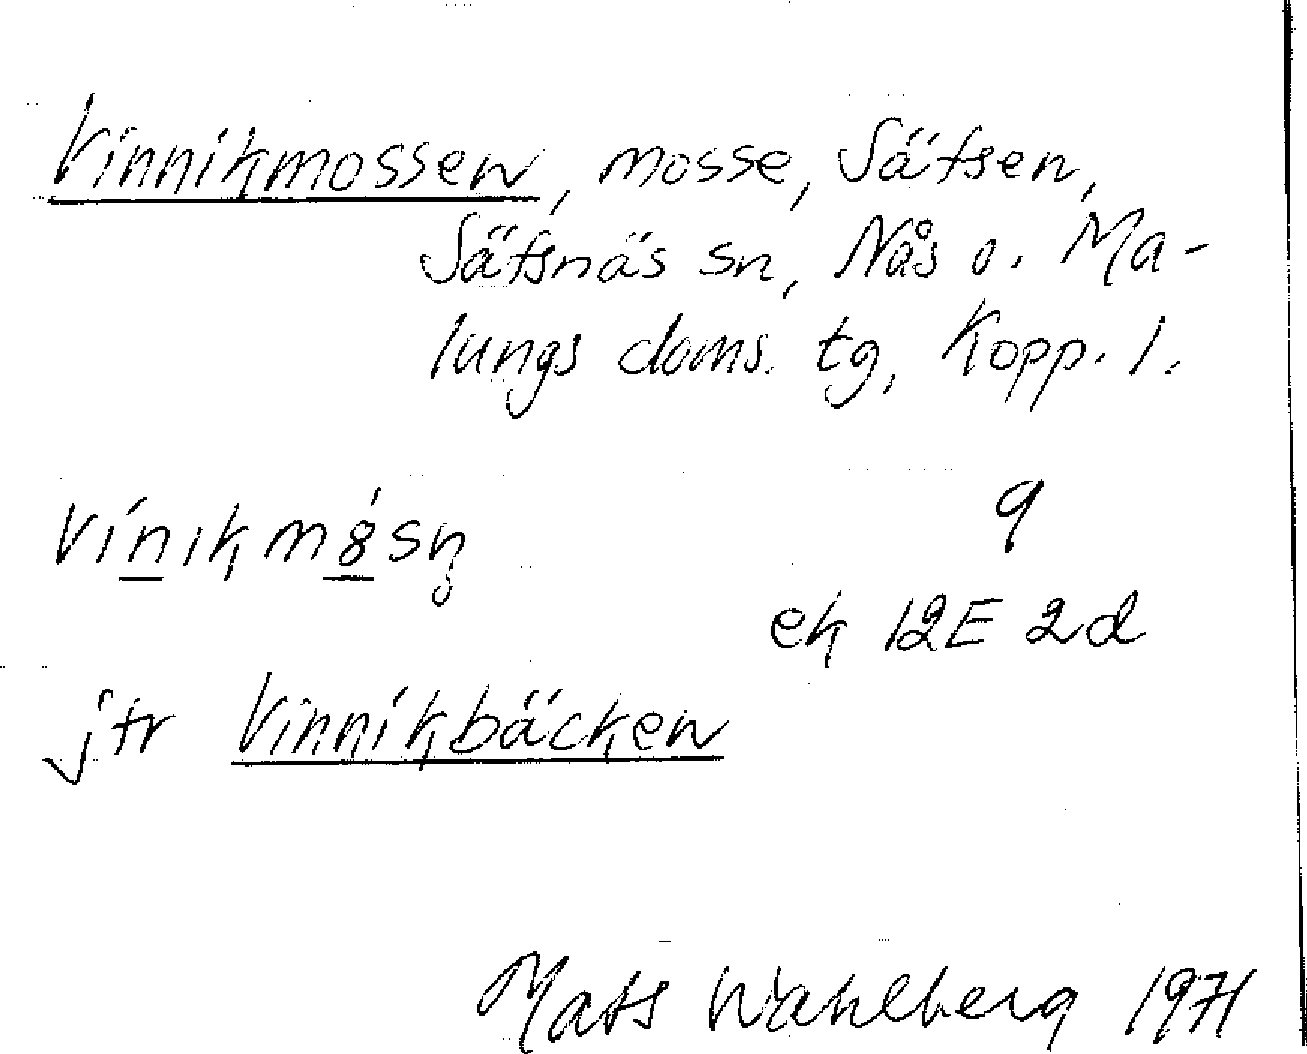 Vinnikmossen, mosse, Sätsen,
Sätsnäs sn, Nås o. Ma-
lungs doms. tg, Kopp. l.
9
ek 12E 2d
jtr Vinnikbäcken
Mats Wahlberg 1971